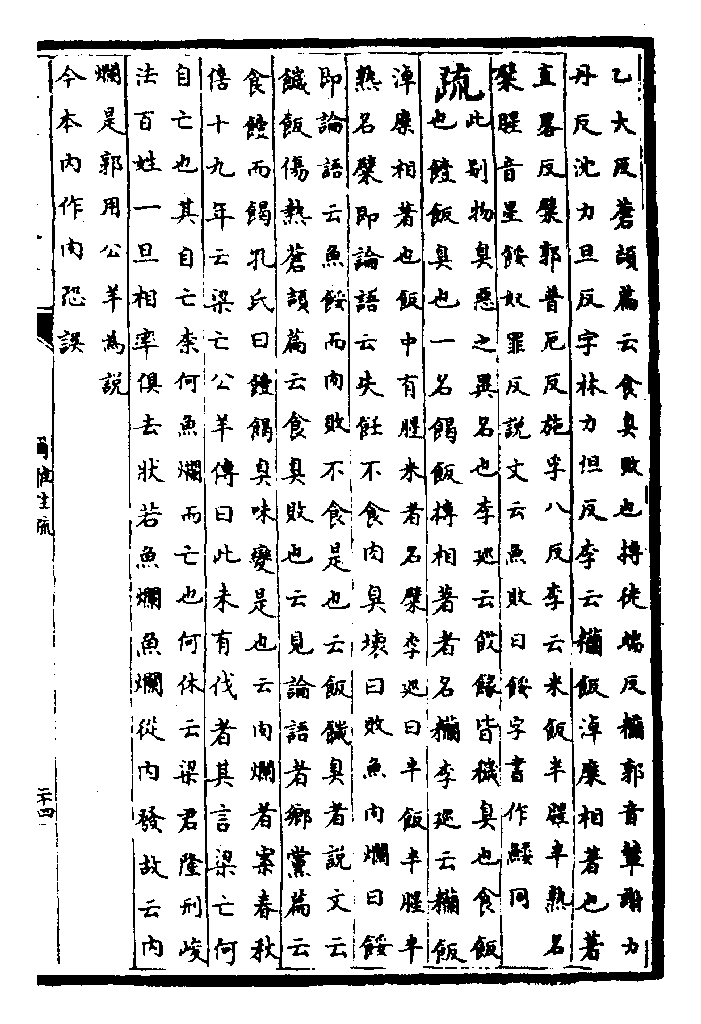 乙大反蒼頡篇云食臭敗也摶徒端反糷郭音輦謝力
丹反沈力旦反字林力但反李云糷飯淖糜相著也著
直畧反檗郭普厄反施孚八反李云米飯半腥半熟名
檗腥音星餒奴罪反説文云魚敗曰餒字書作鮾同
疏
此别物臭惡之異名也李廵云饐餲皆穢臭也食飯
也饐飯臭也一名餲飯摶相著者名糷李廵云糷飯
淖糜相著也飯中有腥米者名檗李廵曰半飯半腥半
熟名檗即論語云失飪不食肉臭壊曰敗魚内爛曰餒
即論語云魚餒而肉敗不食是也云飯饖臭者説文云
饖飯傷熱蒼頡篇云食臭敗也云見論語者鄉黨篇云
食饐而餲孔氏曰饐餲臭味變是也云内爛者案春秋
僖十九年云梁亡公羊傳曰此未有伐者其言梁亡何
自亡也其自亡柰何魚爛而亡也何休云梁君隆刑峻
法百姓一旦相率俱去狀若魚爛魚爛從内發故云内
爛是郭用公羊為説
今本内作肉恐誤
爾雅注疏
二十四